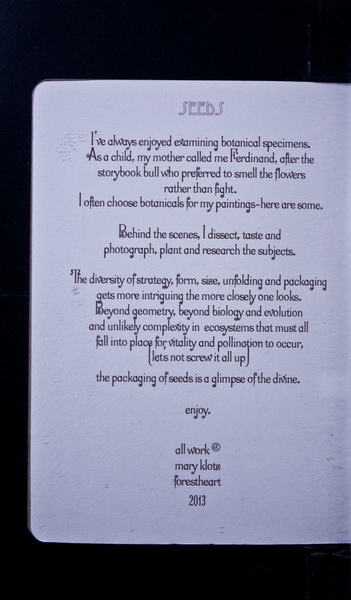 SEEDS
I've always enjoyed examining botanical specimens.
As a child, my mother called me Ferdinand, after the
storybook bull who preferred to smell the flowers
rather than fight.
I often choose botanicals for my paintings-here are some.
Behind the scenes, I dissect, taste and
photograph, plant and research the subjects.
The diversity of strategy, form, size, unfolding and packaging
gets more intriguing the more closely one looks.
Beyond geometry, beyond biology and evolution
and unlikely complexity in ecosystems that must all
fall into place for vitality and pollination to occur,
(lets not screw it all up)
the packaging of seeds is a glimpse of the divine.
enjoy.
all work ©
mary klotz
forestheart
2013